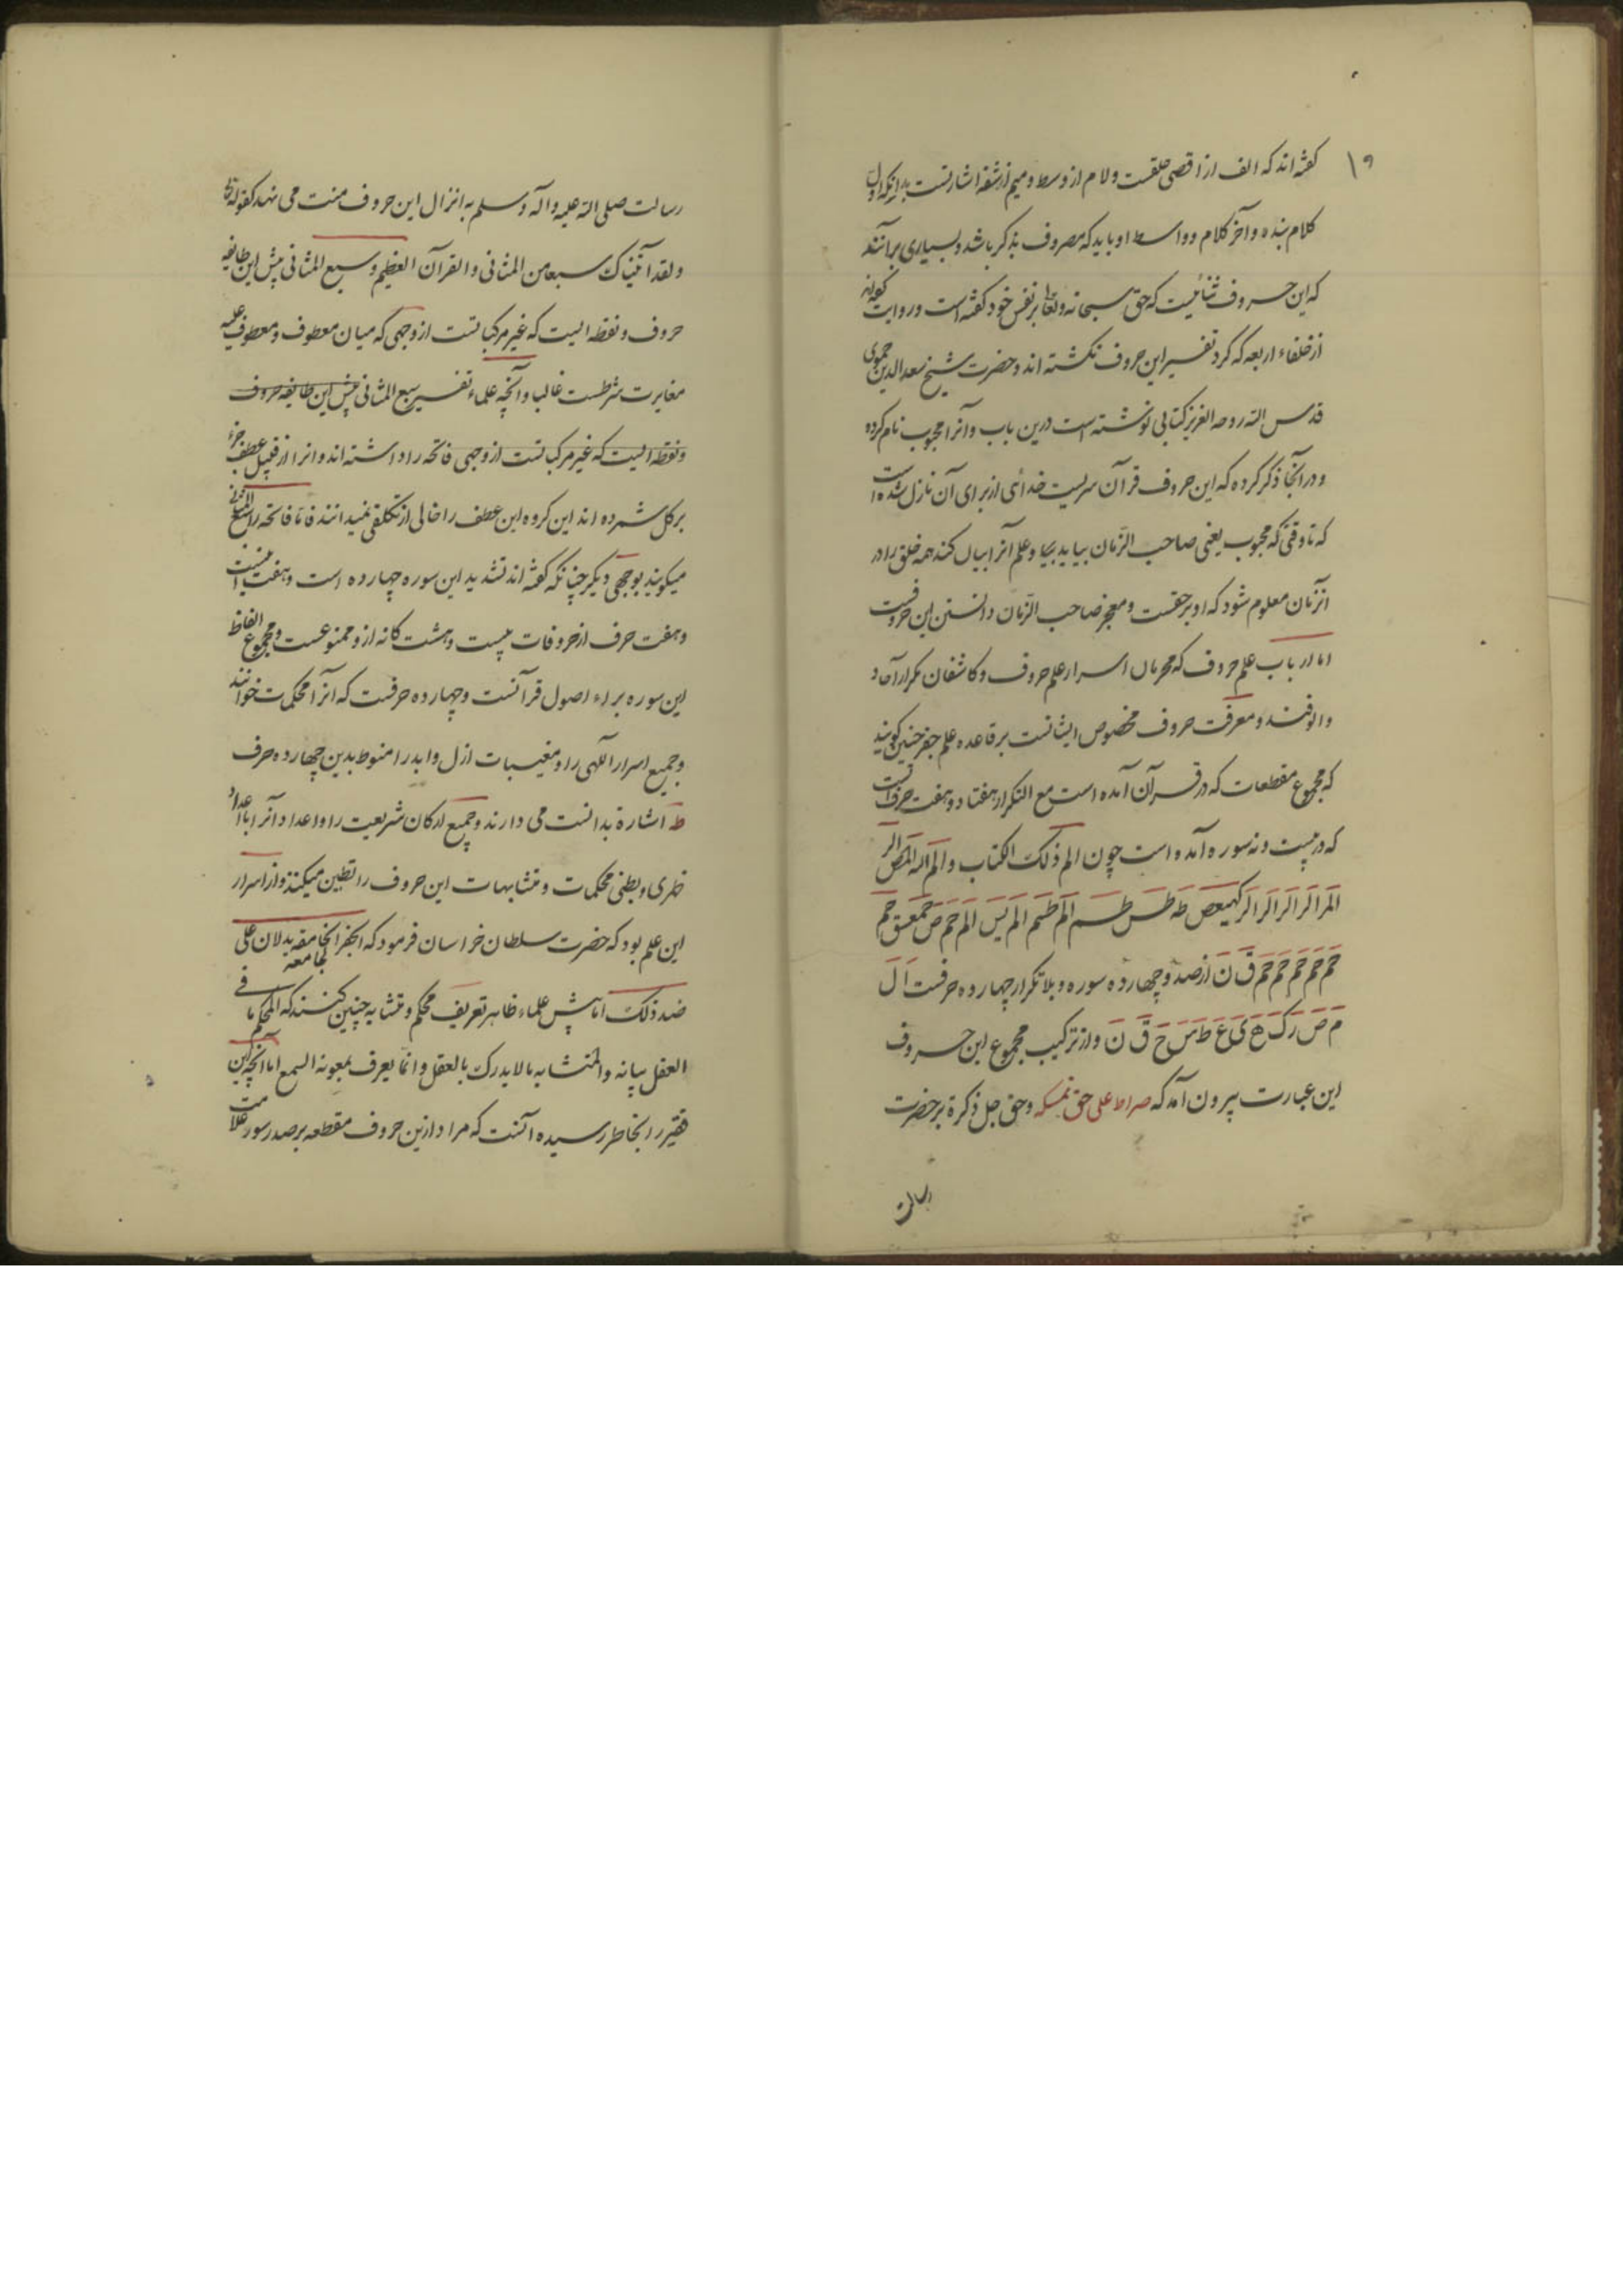 ۱۹
گفته‌اند که الف از اقصی حلقست و لام از وسط و میم از شفه اشارتست بدانکه اول
کلام بنده و آخر کلام و واسط او باید که مصروف بذکر باشد و بسیاری برآنند
که این حروف ثنائیست که حق سبحانه و تعالی بر نفس خود گفته است و روایت کرده‌اند
از خلفاء اربعه که گرد تفسیر این حروف نگشته‌اند و حضرت شیخ سعد الدین حموی
قدس الله روحه العزیز کتابی نوشته است درین باب و آنرا محبوب نام کرده
و در انجا ذکر کرده که این حروف قرآن سریست خدائی از برای آن نازل شده است
که تا وقتی که محبوب یعنی صاحب الزمان بیاید و علم آنرا بیان کند همه خلق را در
آنزمان معلوم شود که او بر حقست و معجز صاحب الزمان دانستن این حروفست
اما ارباب علم حروف که محرمان اسرار علم حروف و کاشفان
و الوفند و معرفت حروف مخصوص ایشانست بر قاعده علم جفر چنین گویند
که مجموع مقطعات که در قرآن آمده است مع التکرار هفتاد و هفت حرفست
که در بیست و نه سوره آمده است چون الم ذلک الکتاب و الم الله المص الر
المر الر الر الر الر کهیعص طه طس طسم الم طسم الم یس الم حم ص حمعسق حم
حم حم حم حم حم ق ن از صد و چهارده سوره و بلا تکرار چهارده حرفست ا ل
م ص ر ک ه ی ع ط س ح ق ن و از ترکیب مجموع این حروف
این عبارت بیرون آمد که صراط علی حق نمسکه و حق جل ذکره بر حضرت
رسالت
رسالت صلی الله علیه و آله و سلم به انزال این حروف منت می نهد کقوله تعالی
و لقد آتیناک سبعا من المثانی و القرآن العظیم و سبع المثانی پیش این طایفه
حروف و نقطه‌ایست که غیر مرکباتست از وجهی که میان معطوف و معطوف علیه
مغایرت شرطست غالبا و آنچه علماء تفسیر سبع المثانی پیش این طایفه حروف
و نقطه ایست که غیر مرکباتست از وجهی فاتحه را داشته‌اند و انرا از قبیل عطف جزء
بر کل شمرده‌اند این گروه این عطف را خالی از تکلفی نمیدانند فاما فاتحه را السبع المثانی
میگویند بوجهی دیگر چنانکه گفته‌اند تشدید این سوره چهارده است و هفت آیتست
و هفت حرف از حروفات بیست و هشت گانه ازو ممنوعست و مجموع الفاظ
این سوره براء اصول قرآنست و چهارده حرفست که انرا محکمات خوانند
و جمیع اسرار آلهی را و مغیبات ازل و ابد را منوط بدین چهارده حرف
ط اشارة بدانست می دارند و جمیع ارکان شریعت را و اعداد آنرا با اعداد
ظهری و بطنی محکمات و متشابهات این حروف را تطبیق میکنند و از اسرار
این علم بود که حضرت سلطان خراسان فرمود که الجفر الجامعه یدلان علی
الجامعه
ضد ذلک اما پیش علماء ظاهر تعریف محکم و متشابه چنین کنند که المحکم ما فی
العقل بیانه و المتشابه ما لا یدرک بالعقل و انما یعرف بمعونه السمع اما آنچه این
فقیر را بخاطر رسیده آنست که مراد ازین حروف مقطعه بر صدر سور علامت